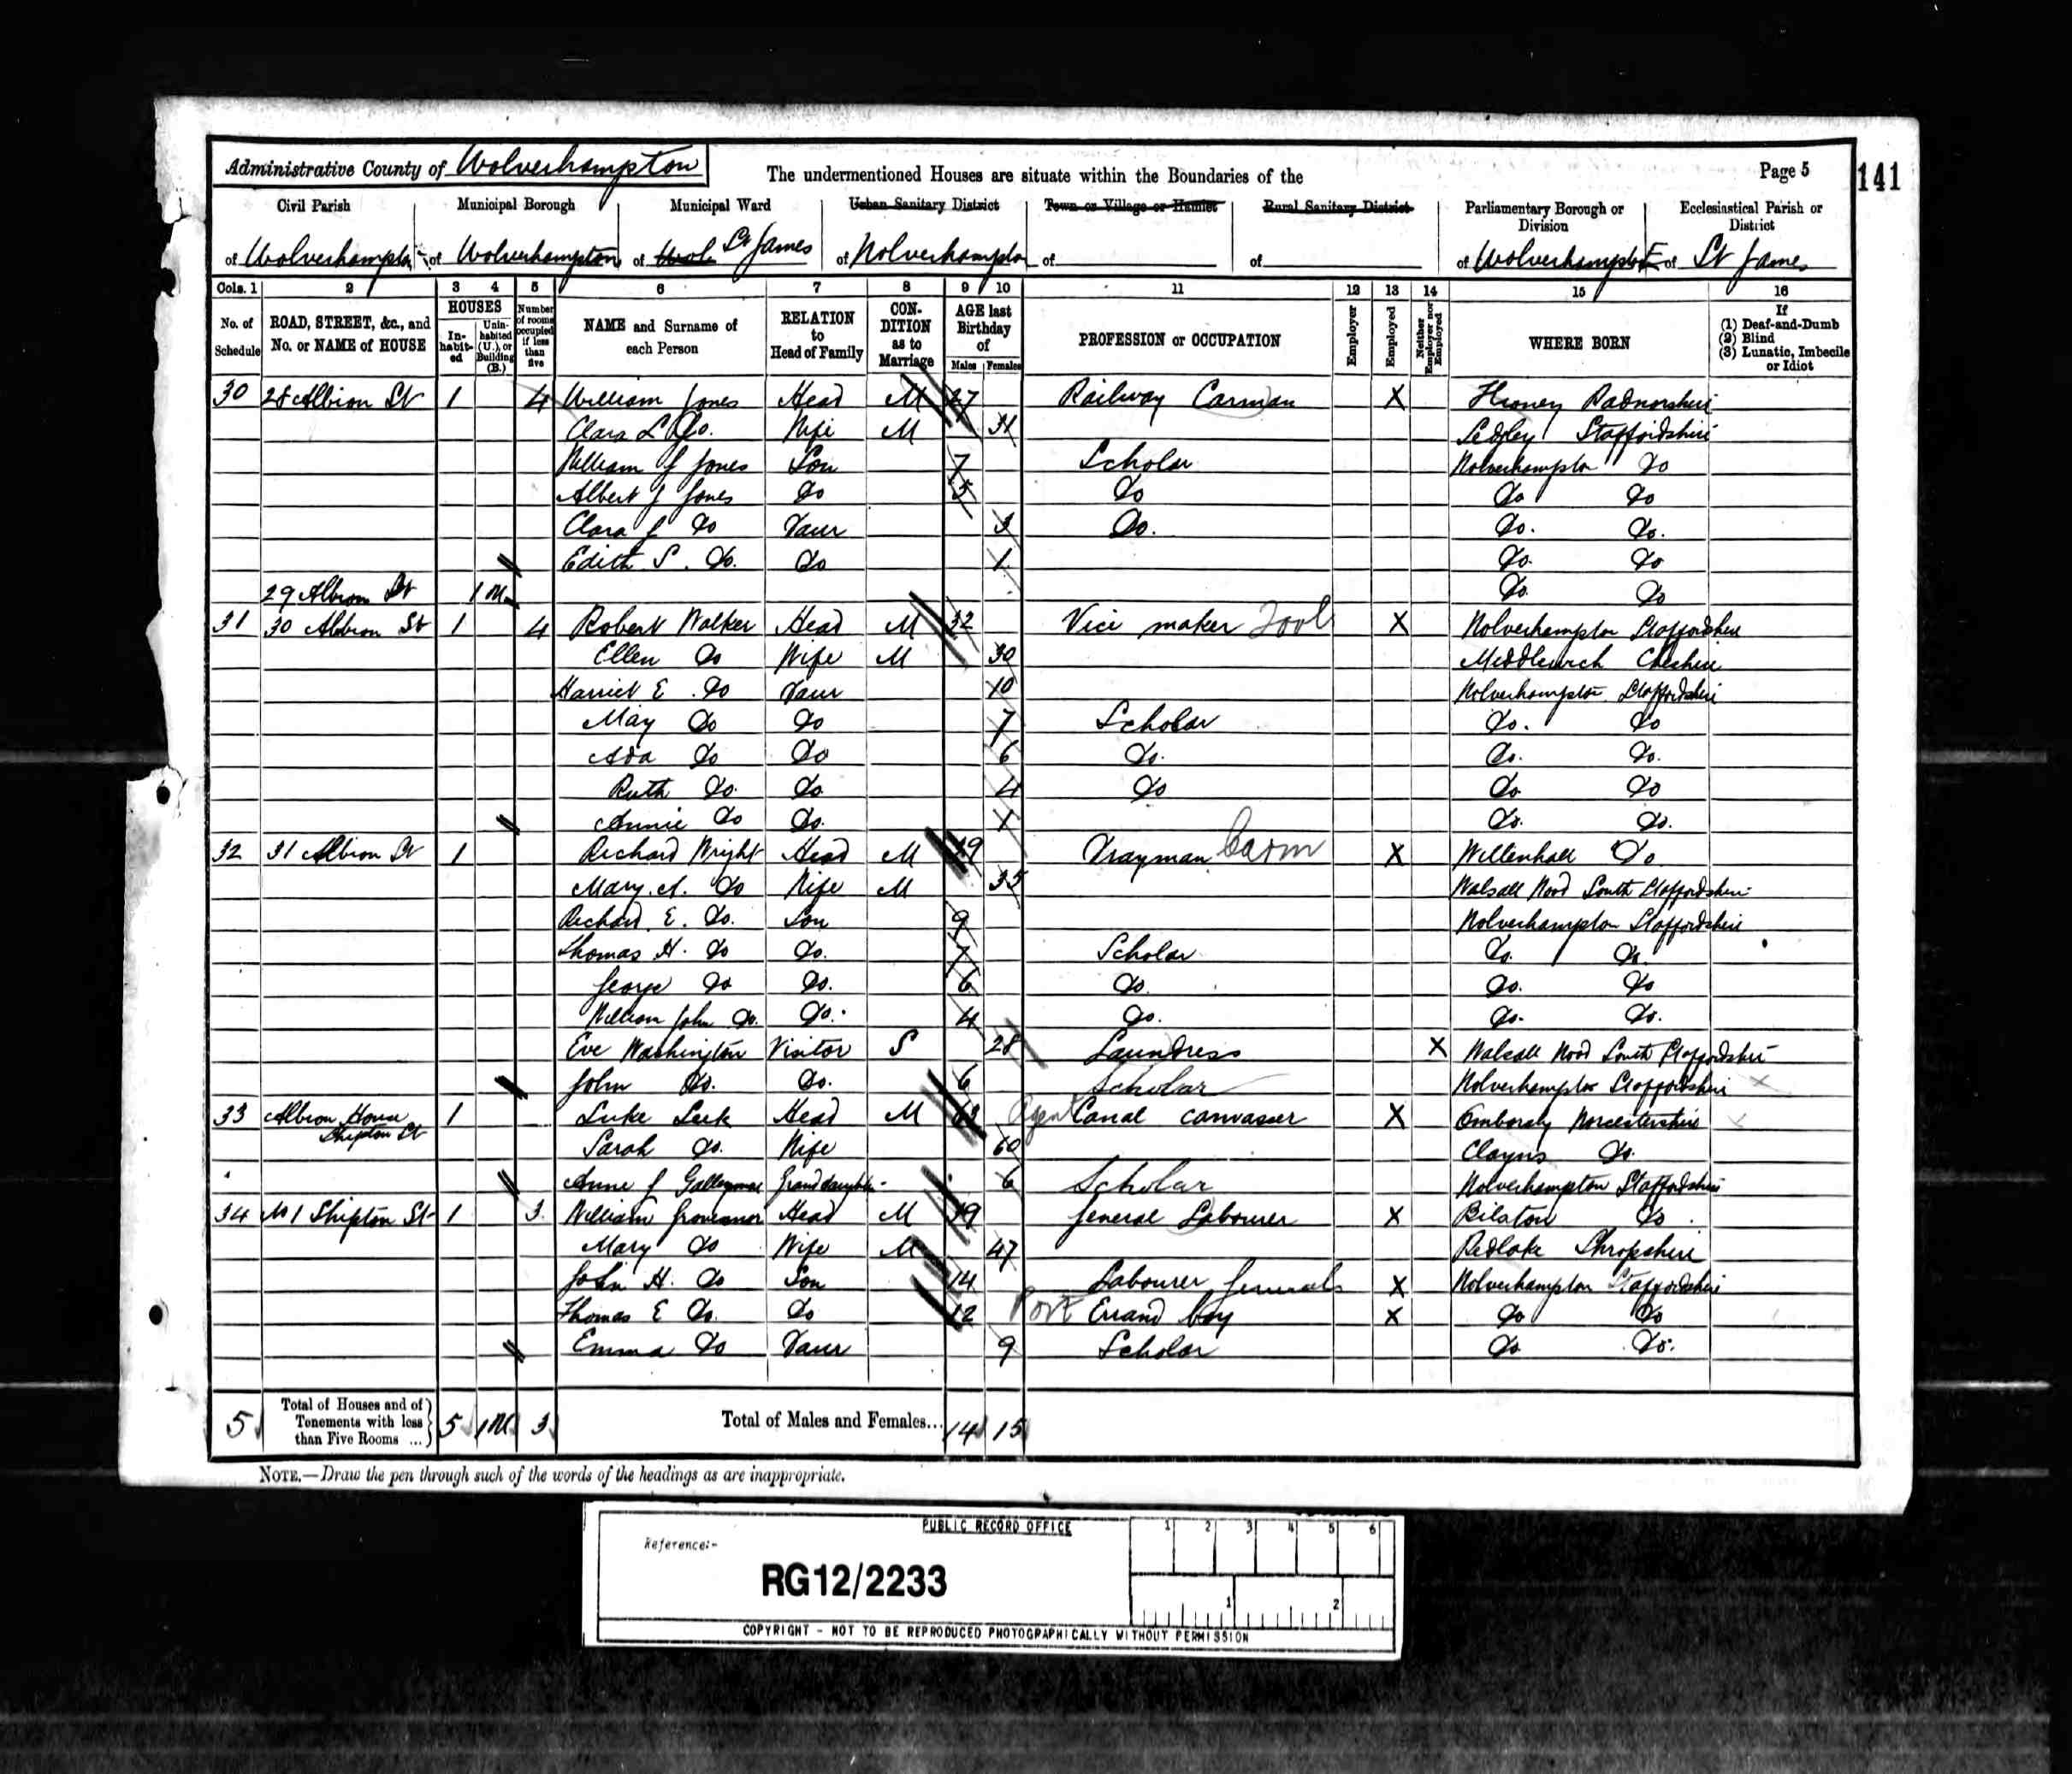 Administrative County of Wolverhampton
The undermentioned Houses are situate within the Boundaries of the
Page 5
141
Civil Parish
Municipal Borough
Municipal Ward
Urban Sanitary District
Town or Village or Hamlet
Rural Sanitary District
Parliamentary Borough or Division
Ecclesiastical Parish or District
of Wolverhampton of Wolverhampton of St James of Wolverhampton of of of Wolverhampton E of St James
Cols. 1 2 3 4 5 6 7 8 9 10 11 12 13 14 15 16
No. of Schedule
ROAD, STREET, &c., and No. or NAME of HOUSE
HOUSES
In-habit-ed
Unin-habited (U.), or Building (B.)
Number of rooms occupied if less than five
NAME and Surname of each Person
RELATION to Head of Family
CON-DITION as to Marriage
AGE last Birthday of
Males Females
PROFESSION or OCCUPATION
Employer
Employed
Neither Employer nor Employed
WHERE BORN
If
(1) Deaf-and-Dumb
(2) Blind
(3) Lunatic, Imbecile or Idiot
30 28 Albion St 1 4 William Jones Head M Railway Carman X Radnorshire
Clara L Do. Wife M 31 Sedgley Staffordshire
William J Jones Son 7 Scholar Wolverhampton Do
Albert J Jones Do 5 Do Do Do
Clara J Do Daur 3 Do. Do. Do.
Edith S. Do. Do 1 Do. Do
29 Albion St 1 Do. Do
31 30 Albion St 1 4 Robert Walker Head M 32 Vice maker Tool X Wolverhampton Staffordshire
Ellen Do Wife M 30 Middlewich Cheshire
Harriet E. Do Daur 10 Wolverhampton Staffordshire
May Do Do 7 Scholar Do. Do
Ada Do Do 6 Do. Do. Do.
Ruth Do. Do. 4 Do Do Do
Annie Do Do. 1 Do. Do.
32 31 Albion St 1 Richard Wright Head M Drayman Carm X Willenhall Do
Mary A. Do Wife M 35 Walsall Wood South Staffordshire
Richard E. Do. Son 9 Wolverhampton Staffordshire
Thomas H. Do Do. 7 Scholar Do. Do.
George Do Do. 6 Do. Do. Do
William John Do. Do. 4 Do. Do. Do.
Eve Washington Visitor S 28 Laundress X Walsall Wood South Staffordshire
John Do. Do. 6 Scholar Wolverhampton Staffordshire
33 Albion House Shipton St 1 Luke Leek Head M 63 Agent Canal canvasser X Ombersly Worcestershire
Sarah Do. Wife 60 Do.
Anne J Granddaughter 6 Scholar Wolverhampton Staffordshire
34 No 1 Shipton St 1 3 William Grovenor Head M General Labourer X Bilston Do
Mary Do Wife M 47 Redlake Shropshire
John H. Do Son 14 Labourer General X Wolverhampton Staffordshire
Thomas E Do. Do 12 Port Errand boy X Do Do
Emma Do Daur 9 Scholar Do Do.
5 Total of Houses and of Tenements with less than Five Rooms ... 5 3 Total of Males and Females... 14 15
NOTE.—Draw the pen through such of the words of the headings as are inappropriate.
PUBLIC RECORD OFFICE
Reference:-
RG12/2233
1 2 3 4 5 6
1 2
COPYRIGHT - NOT TO BE REPRODUCED PHOTOGRAPHICALLY WITHOUT PERMISSION